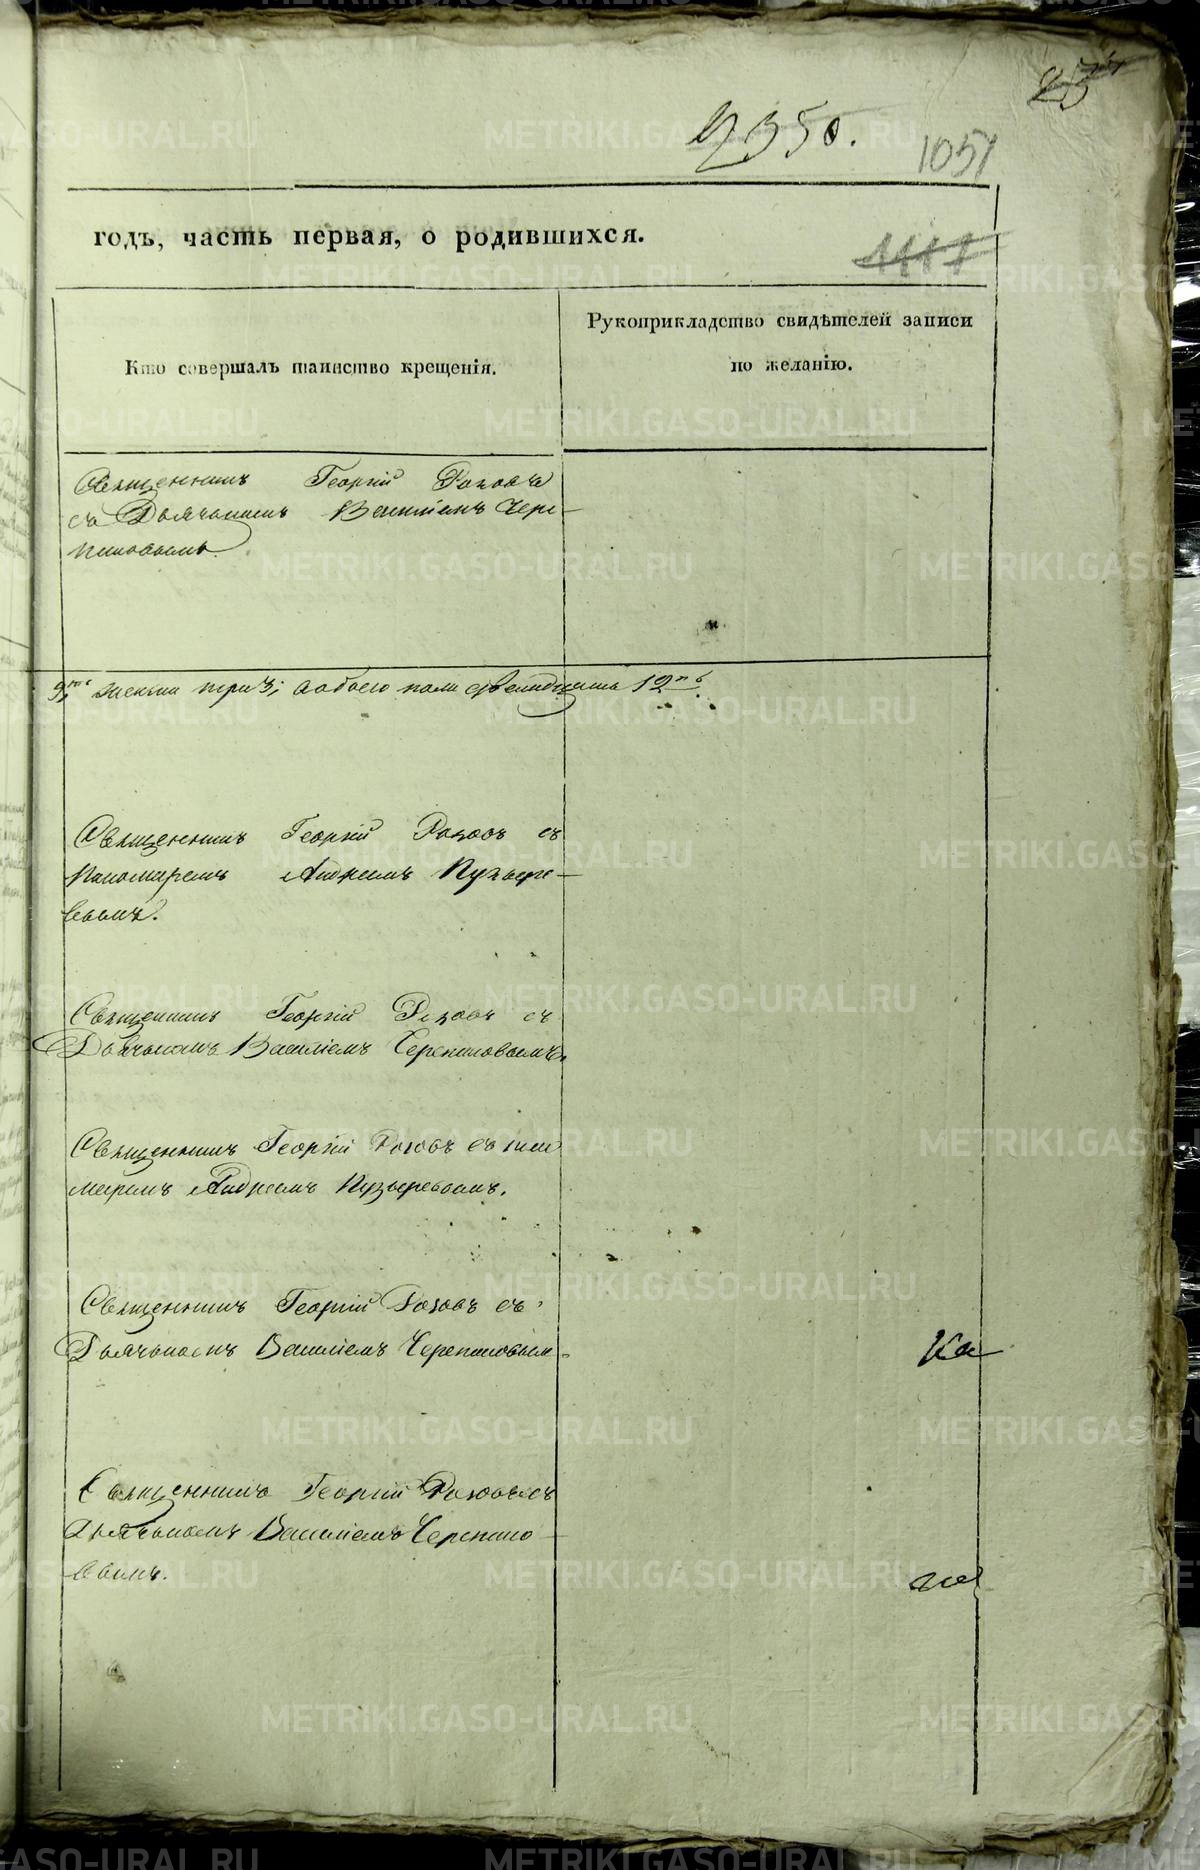 2350.
1051
годъ, часть первая, о родившихся.
Кто совершалъ таинство крещенія.
Рукоприкладство свидѣтелей записи
по желанію.
Священникъ Георгій Роховъ
съ Дьячькомъ Василіемъ Чере-
пановымъ.
женска три 3; а обоего пола двенадцать 12
Священникъ Георгій Роховъ съ
пономаремъ Андреемъ Пузыре-
вымъ.
Священникъ Георгій Роховъ съ
Дьячькомъ Василіемъ Черепановымъ.
Священникъ Георгій Роховъ съ поно
маремъ Андреемъ Пузыревымъ.
Священникъ Георгій Роховъ съ
Дьячькомъ Василіемъ Черепановым-
Священникъ Георгій Роховъ съ
Дьячькомъ Василіемъ Черепано-
вымъ.
METRIKI.GASO-URAL.RU